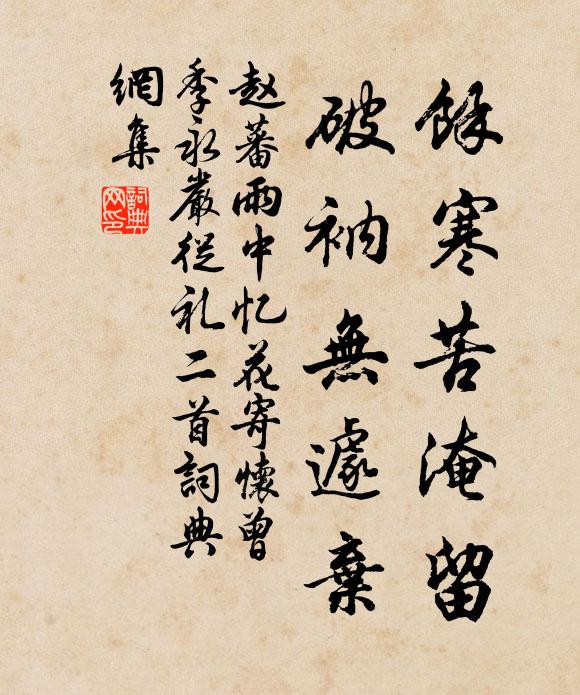 餘寒苦淹留
破衲無遽棄
赵蕃雨中忆花寄懷曾
季永嚴從礼二首詞典
網集
詞典
网印